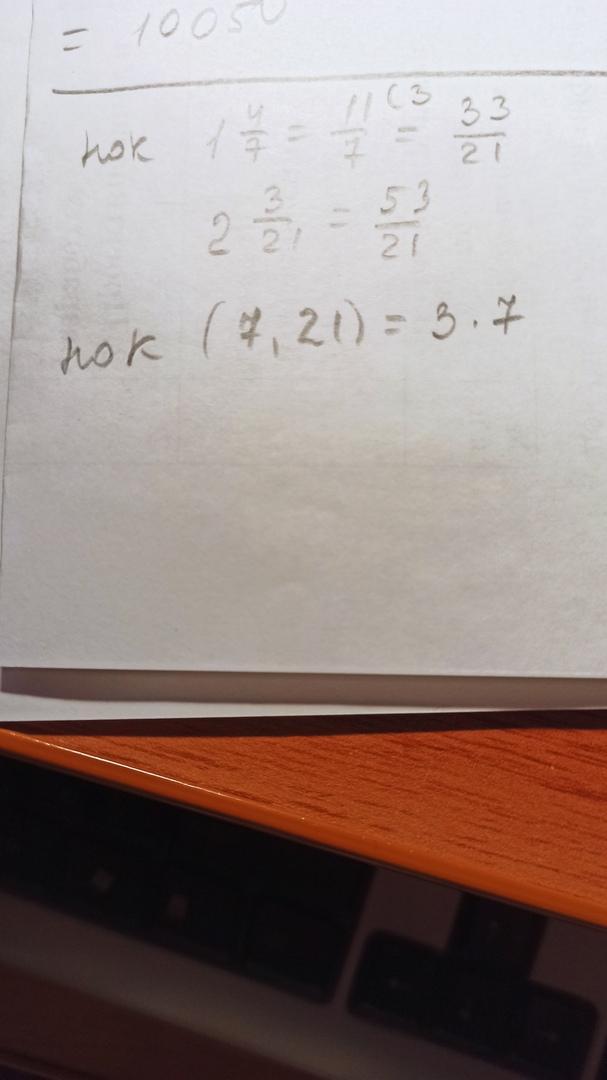 = 10050
нок 1 4/7 = 11/7 (3 = 33/21
2 3/21 = 53/21
нок (7, 21) = 3 · 7